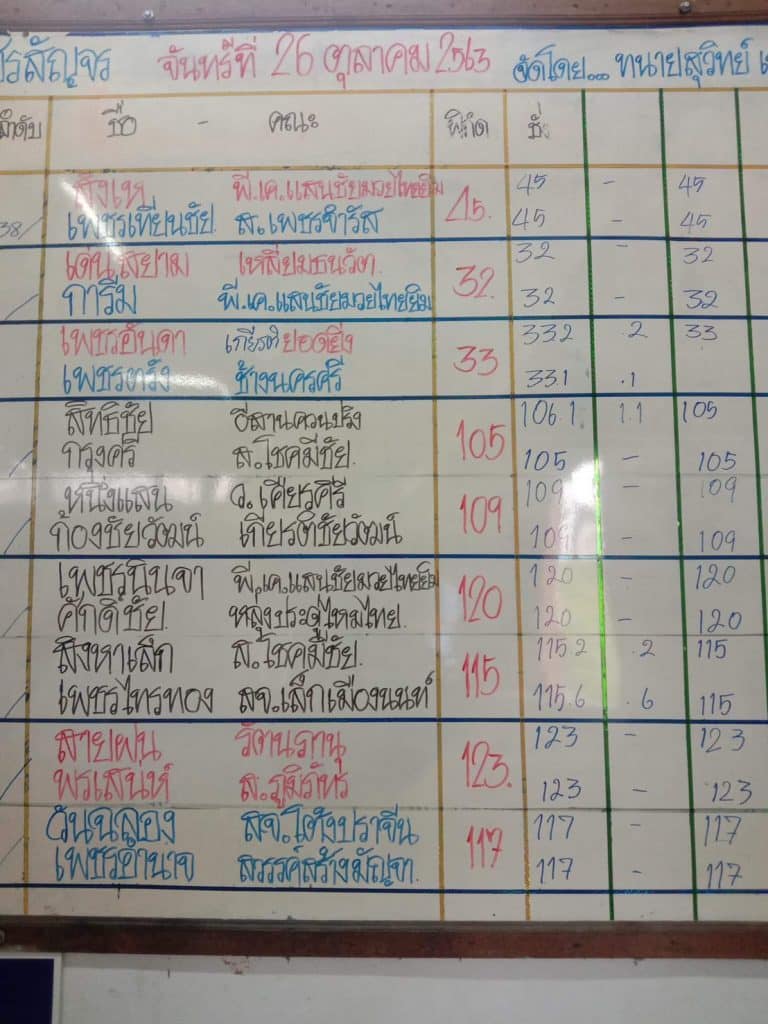 รสัญจร จันทร์ที่ 26 ตุลาคม 2563 จัดโดย... ทนายสุวิทย์
ลำดับ ชื่อ - คณะ พิกัด ชั่ง
พี.เค.แสนชัยมวยไทยยิม 45. 45 - 45
38/ เพชรเทียนชัย ส.เพชรจำรัส 45 - 45
เด่นสยาม เหลี่ยมธนวัต 32. 32 - 32
การีม พี.เค.แสนชัยมวยไทยยิม 32 - 32
เพชรอันดา เกียรติยอดยิ่ง 33 33.2 .2 33
เพชรตรัง ช้างนครศรี 33.1 .1
สิทธิชัย อีสานควนปริง 105 106.1 1.1 105
กรุงศรี ส.โชคมีชัย. 105 - 105
หนึ่งแสน ว.เศียรศิริ 109 109 - 109
ก้องชัยวัฒน์ เกียรติชัยวัฒน์ 109 - 109
เพชรนินจา พี.เค.แสนชัยมวยไทยยิม 120 120 - 120
ศักดิ์ชัย. หลุงประดู่ไหมไทย. 120 - 120
สิงหาเล็ก ส.โชคมีชัย. 115 115.2 .2 115
เพชรไทรทอง สจ.เล็กเมืองนนท์ 115.6 .6 115
สายฝน รัตนภานุ 123. 123 - 123
พรเสน่ห์ ส.ภูมิภัทร 123 - 123
วันฉลอง สจ.โต้งปราจีน 117 117 - 117
เพชรอำนาจ สวรรค์สร้างมัญจา. 117 - 117